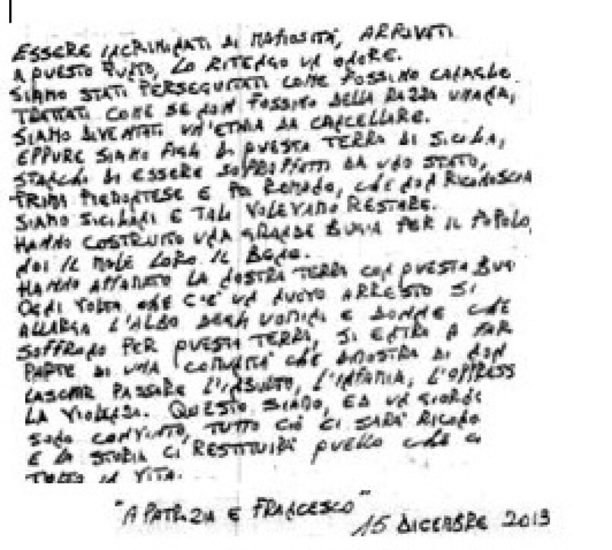 ESSERE INCRIMINATI DI MAFIOSITÀ, ARRIVATI
A QUESTO PUNTO, LO RITENGO UN ONORE.
SIAMO STATI PERSEGUITATI COME FOSSIMO CANAGLIE
TRATTATI COME SE NON FOSSIMO DELLA RAZZA UMANA,
SIAMO DIVENTATI UN'ETNIA DA CANCELLARE.
EPPURE SIAMO FIGLI DI QUESTA TERRA DI SICILIA,
STANCHI DI ESSERE SOPRAFFATTI DA UNO STATO,
PRIMA PIEMONTESE E POI ROMANO, CHE NON RICONOSCIA
SIAMO SICILIANI E TALI VOLEVAMO RESTARE.
HANNO COSTRUITO UNA GRANDE BUGIA PER IL POPOLO,
NOI IL MALE LORO IL BENE.
HANNO AFFAMATO LA NOSTRA TERRA CON QUESTA BUG
OGNI VOLTA CHE C'È UN NUOVO ARRESTO SI
ALLARGA L'ALBO DEGLI UOMINI E DONNE CHE
SOFFRONO PER QUESTA TERRA, SI ENTRA A FAR
PARTE DI UNA COMUNITÀ CHE DIMOSTRA DI NON
LASCIAR PASSARE L'INSULTO, L'INFAMIA, L'OPPRESS
LA VIOLENZA. QUESTO SIAMO, ED UN GIORNO
SONO CONVINTO, TUTTO CIÒ CI SARÀ RICONO
E LA STORIA CI RESTITUIRÀ QUELLO CHE CI
TOLTO IN VITA.
"A PATRIZIA E FRANCESCO"
15 DICEMBRE 2013